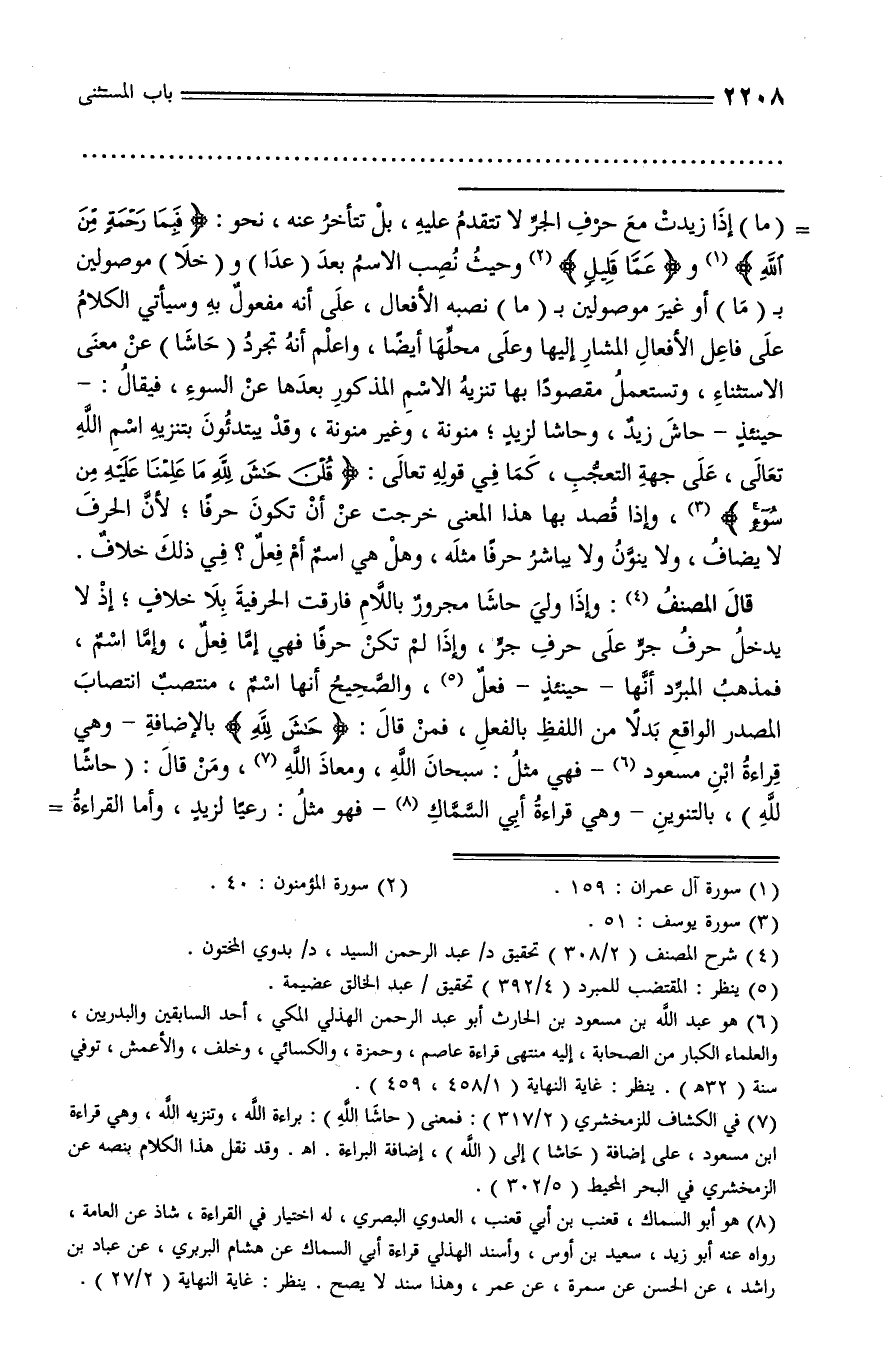 ٢٢٠٨ باب المستثنى
= ( ما ) إذَا زيدتْ معَ حرْفِ الجرِّ لا تتقدمُ عليهِ ، بلْ تتأخرُ عنه ، نحو : ﴿ فَبِمَا رَحْمَةٍ مِّنَ
ٱللَّهِ ﴾ (١) و ﴿ عَمَّا قَلِيلٍ ﴾ (٢) وحيثُ نُصِب الاسمُ بعدَ ( عدَا ) و ( خلَا ) موصولين
بـ ( مَا ) أو غيرَ موصولين بـ ( ما ) نصبه الأفعال ، علَى أنه مفعولٌ بهِ وسيأتي الكلامُ
علَى فاعِل الأفعالِ المشارِ إليها وعلَى محلِّهَا أيضًا ، واعلْم أنهُ تجردُ ( حَاشَا ) عنْ معنَى
الاستثناءِ ، وتستعملُ مقصودًا بها تنزيهُ الاسْمِ المذكورِ بعدَها عنْ السوءِ ، فيقالُ : –
حينئذٍ – حاشَ زيدٌ ، وحاشا لزيدٍ ؛ منونة ، وغير منونة ، وقدْ يبتدئُونَ بتنزيهِ اسْمِ اللَّهِ
تعَالَى ، عَلَى جهةِ التعجُّبِ ، كَمَا فِي قولِهِ تعالَى : ﴿ قُلْنَ حَٰشَ لِلَّهِ مَا عَلِمْنَا عَلَيْهِ مِن
سُوٓءٍ ﴾ (٣) ، وإذا قُصد بها هذا المعنى خرجت عنْ أنْ تكونَ حرفًا ؛ لأنَّ الحرفَ
لا يضافُ ، ولا ينوَّنُ ولا يباشرُ حرفًا مثلَه ، وهلْ هي اسمٌ أمْ فِعلٌ ؟ فِي ذلكَ خلافٌ .
قالَ المصنفُ (٤) : وإذَا وليَ حاشَا مجرورٌ باللَّامِ فارقت الحرفيةَ بِلَا خلافٍ ؛ إذْ لا
يدخلُ حرفُ جرٍّ علَى حرفِ جرٍّ ، وإذَا لمْ تكنْ حرفًا فهي إمَّا فِعلٌ ، وإمَّا اسْمٌ ،
فمذهبُ المبرِّد أنَّها – حينئذٍ – فعلٌ (٥) ، والصَّحِيحُ أنها اسْمٌ ، منتصبٌ انتصابَ
المصدر الواقعِ بَدلًا من اللفظِ بالفعلِ ، فمنْ قالَ : ﴿ حَٰشَ لِلَّهِ ﴾ بالإضافةِ – وهي
قِراءةُ ابْنِ مسعود (٦) – فهي مثلُ : سبحانَ اللَّهِ ، ومعاذَ اللَّهِ (٧) ، ومَنْ قالَ : ( حاشًا
للَّهِ ) ، بالتنوينِ – وهي قراءةُ أبِي السَّمَّاكِ (٨) – فهو مثلُ : رعيًا لزيدٍ ، وأما القراءةُ =
(١) سورة آل عمران : ١٥٩ . (٢) سورة المؤمنون : ٤٠ .
(٣) سورة يوسف : ٥١ .
(٤) شرح المصنف ( ٣٠٨/٢ ) تحقيق د/ عبد الرحمن السيد ، د/ بدوي المختون .
(٥) ينظر : المقتضب للمبرد ( ٣٩٢/٤ ) تحقيق / عبد الخالق عضيمة .
(٦) هو عبد اللَّه بن مسعود بن الحارث أبو عبد الرحمن الهذلي المكي ، أحد السابقين والبدريين ،
والعلماء الكبار من الصحابة ، إليه منتهى قراءة عاصم ، وحمزة ، والكسائي ، وخلف ، والأعمش ، توفي
سنة ( ٣٢هـ ) . ينظر : غاية النهاية ( ٤٥٨/١ ، ٤٥٩ ) .
(٧) في الكشاف للزمخشري ( ٣١٧/٢ ) : فمعنى ( حاشَا اللَّهِ ) : براءة اللَّه ، وتنزيه اللَّه ، وهي قراءة
ابن مسعود ، على إضافة ( حَاشا ) إلى ( اللَّه ) ، إضافة البراءة . اهـ . وقد نقل هذا الكلام بنصه عن
الزمخشري في البحر المحيط ( ٣٠٢/٥ ) .
(٨) هو أبو السماك ، قعنب بن أبي قعنب ، العدوي البصري ، له اختيار في القراءة ، شاذ عن العامة ،
رواه عنه أبو زيد ، سعيد بن أوس ، وأسند الهذلي قراءة أبي السماك عن هشام البربري ، عن عباد بن
راشد ، عن الحسن عن سمرة ، عن عمر ، وهذا سند لا يصح . ينظر : غاية النهاية ( ٢٧/٢ ) .